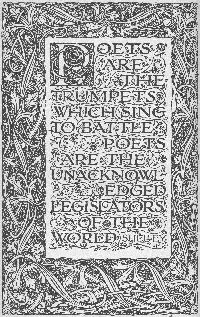 POETS
ARE
THE
TRUMPETS
WHICH SING
TO BATTLE
POETS
ARE THE
UNACKNOWL
EDGED
LEGISLATORS
OF THE
WORLD